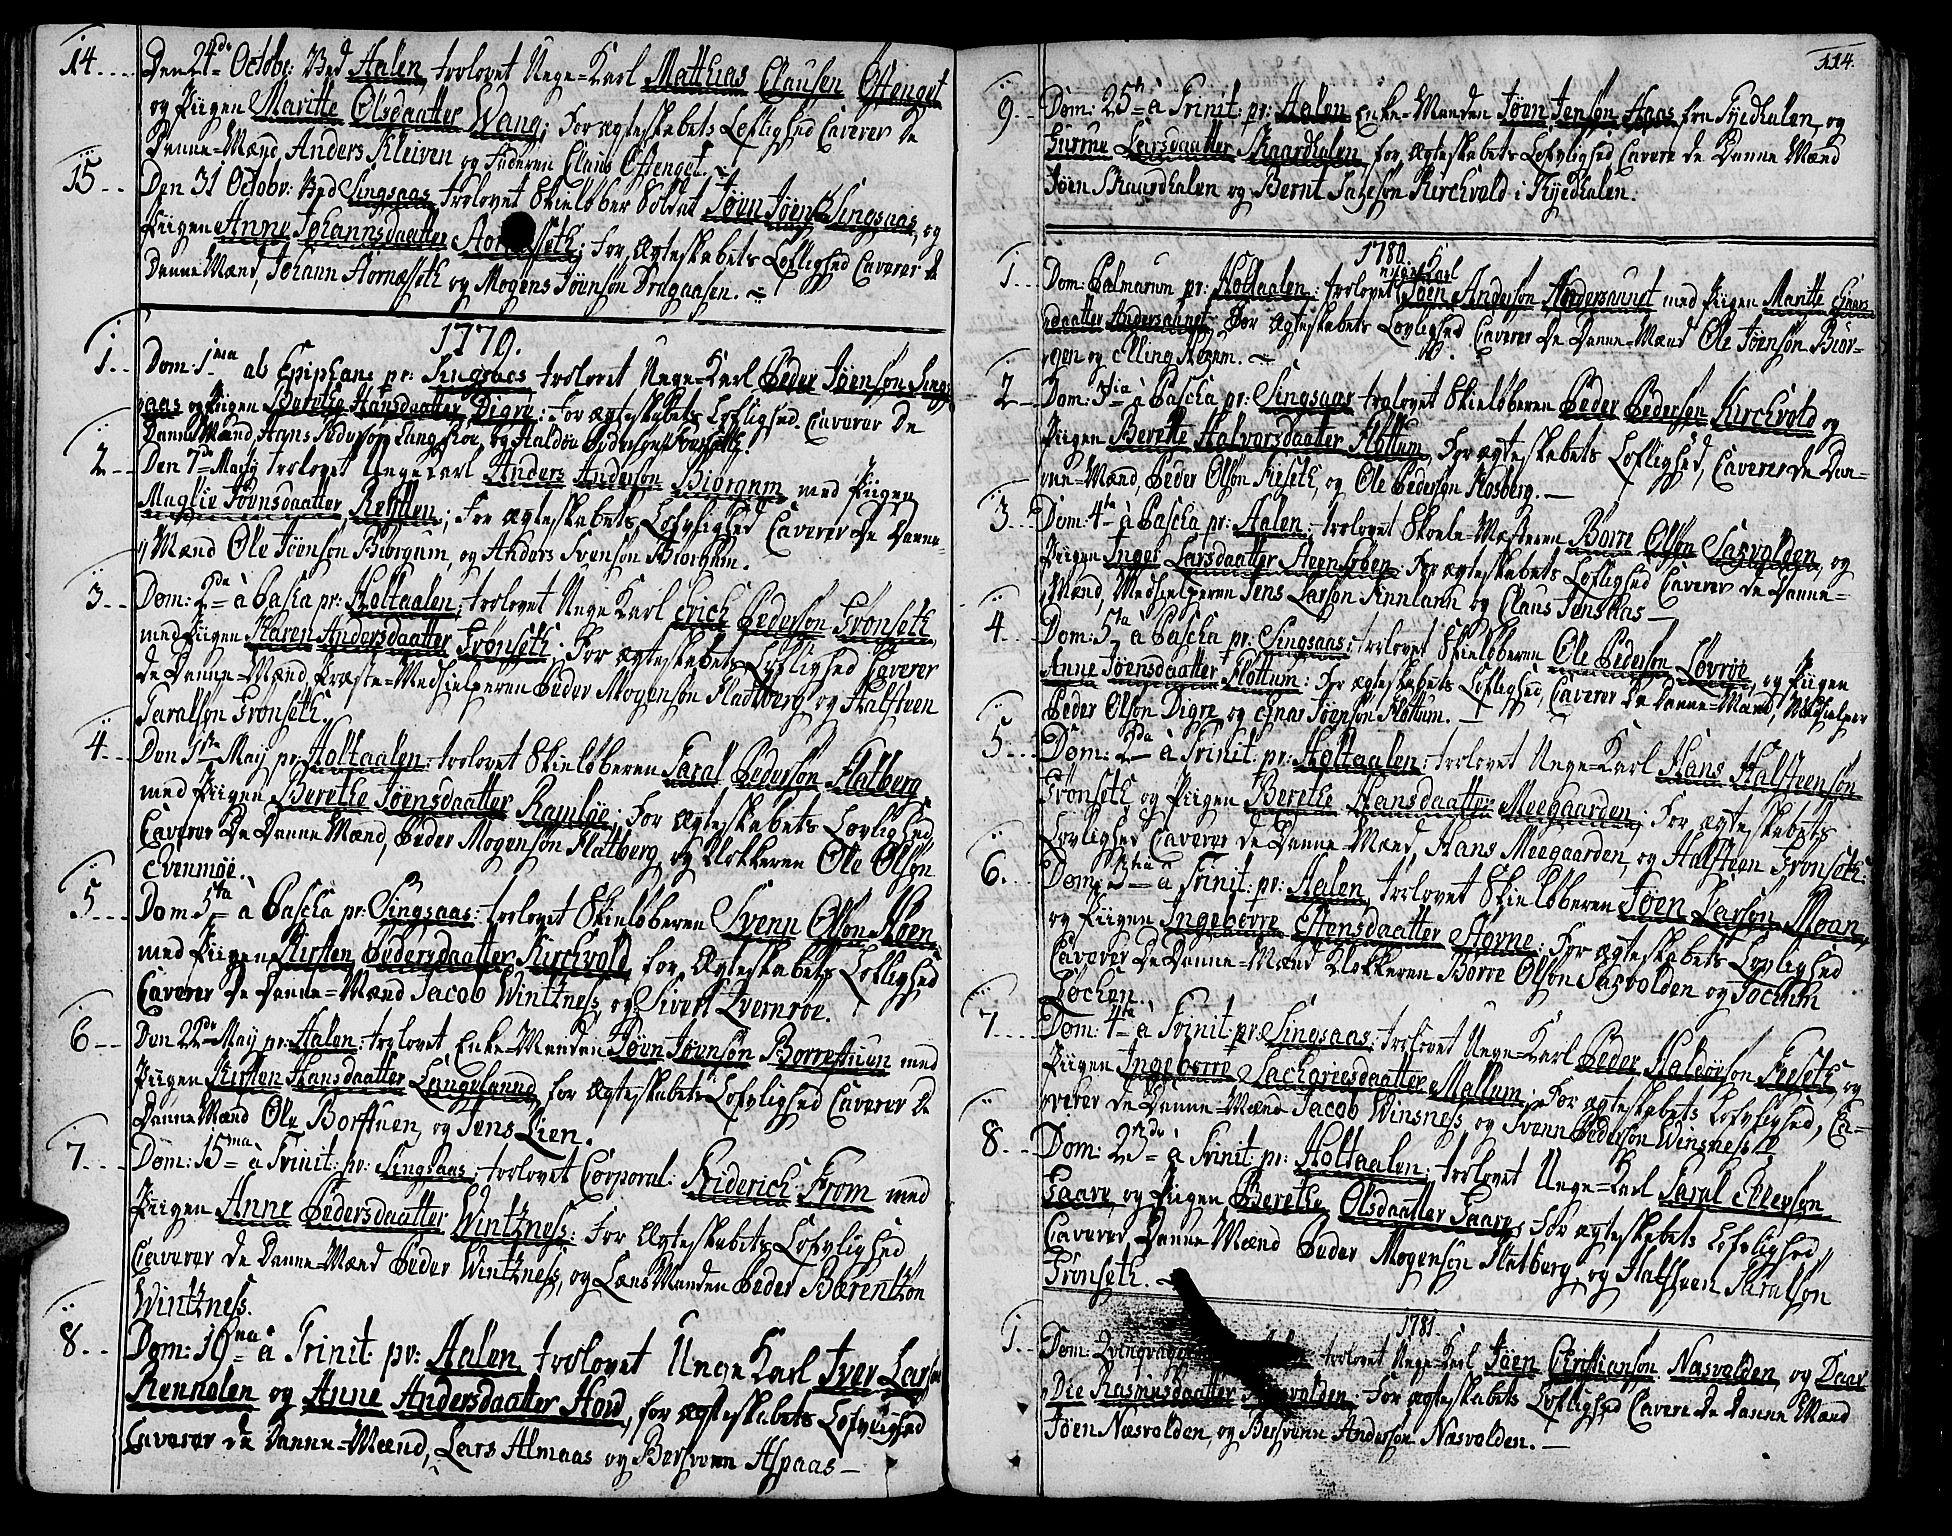 14. Den 24de Octobr: Ved Aalen, trolovet Unge-Karl Matthias Clausen Eftenget
og Piigen Maritte Olsdaatter Wang; for ægteskabets Loflighed Caverer De
Danne-Mænd, Anders Kleiven og Faderen Claus Eftenget.
15 Den 31 Octobr: Ved Singsaas trolovet Skieløber Soldat Jøen Jøens: Singsaas, og
Piigen Anne Johannsdaatter; for Ægteskabets Loflighed Caverer de
Danne Mænd, Johann Stornæsseth og Mogens Jøensøn Dragaasen.
1779.
1. Dom: 1ma ab Epiphan: pr: Singsaas trolovet Unge-Karl Peder Jøensøn Sings
aas og Piigen Berethe Hansdaatter Digre: for ægteskabets Loflighed Caverer De
Danne Mænd Hans Pedersøn Lang Roe, og Haldøe Pedersøn
2 Den 7de Marty trolovet Unge Karl Anders Andersøn Biørgum med Piigen
Maglie Jøensdaatter Rehtlen; for ægteskabets Lofvlighed Caverer De Danne-
Mænd Ole Jøensøn Biørgum, og Anders Svensøn Biørghum.
3. Dom: 2da à Pascha pr: Holtaalen; trolovet Unge Karl Erich Pedersøn Grønseth,
med Piigen Karen Andersdaatter Grønseth: for ægteskabets Loflighed Caverer
de Danne-Mænd, Præste-Medhielperen Peder Mogensøn Flatberg og Halfsteen
Taralsøn Grønseth.
4. Den May pr: Holtaalen: trolovet Skieløberen Taral Pedersøn Flatberg
med Piigen Berethe Jøensdaatter Ramløe; for Ægteskabets Lovlighed
Caverer De Danne Mænd, Peder Mogensøn Flatberg og Klokkeren Ole Olsøn
Evenmøe.
5 Dom 5ta à Pascha pr: Singsaas: trolovet Skieløberen Svenn Olsøn Moen
med Piigen Kirsten Pedersdaatter Kirchvold, for Ægteskabets Loflighed
Caverer De Danne-Mænd Jacob Wintzness, og Sivert Qvernroe.
6 Den 22de May pr: Aalen: trolovet Enke-Manden Jøen Jøensøn Borrestuen med
Piigen Kirsten Hansdaatter Langeland, for Ægteskabets Lofvlighed Caverer De
Danne Mænd Ole Borstuen, og Jens Lien.
7. Dom: 15ma à Trinit: pr: Singsaas, trolovet Corporal: Friderich From med
Piigen Anne Pedersdaatter Wintzness: For Ægteskabets Lofvlighed
Caverer de Danne-Mænd Peder Wintzness, og LænsManden Peder Bærentzøn
Wintzness.
8. Dom: 16na à Trinit: pr: Aalen, trolovet Unge Karl Iver Larsøn
Rennolen og Anne Andersdaatter Hovd, for ægteskabets Lofvlighed
Caverer de Danne-Mænd, Lars Almaas og Bersvenn Aspaas
114.
9. Dom: 25te à Trinit: pr: Aalen Enke-Manden Jøen Jensøn Aaas fra Tyedhalen, og
Gurme Larsdaatter Skaardhalen, for Ægteskabets Lofvlighed Cavere de Danne Mænd
Jøen Skaardhalen og Bernt Kirchvold i Thyedhalen.
1780.
1. Dom: Palmarum pr: Holtaalen: trolovet unge Karl Jøen Andersøn Andersaunet med Piigen Maritte Einars
daatter Andersaunet, for Ægteskabets Lovlighed Caverer De Danne-Mænd Ole Jøensøn Biør-
gen og Elling Hegem.
2 Dom: 3tia à Pascha pr: Singsaas trolovet Skieløberen Peder Pedersøn Kirchvold og
Piigen Berethe Halvorsdaatter Flottum, for ægteskabets Loflighed, Caverer De Dan-
ne-Mænd, Peder Olsøn Kieseth, og Ole Pedersøn Hosberg.
3. Dom: 4ta à Pascha pr: Aalen: trolovet Skole-Mæsteren Borre Olsøn Sasvolden, og
Piigen Inger Larsdaatter Steensroen: for ægteskabets Loflighed Caverer De Danne-
Mænd, Medhielperen Jens Larsøn Finnland og Claus Jensaas
4. Dom: 5ta a Pascha pr: Singsaas: trolovet Skieløberen Ole Pedersøn Løvrøe, og Piigen
Anne Jøensdaatter Flottum: for ægteskabets Loflighed, Caverer De Danne-Mænd, Medhielper
Peder Olsøn Digre, og Einar Jøensøn Flottum.
5. Dom: 2da à Trinit: pr: Holtaalen: trolovet Unge-Karl Hans Halsteensøn
Grønseth og Piigen Berethe Hansdaatter Meegaarden; for ægteskabets
Lovlighed Caverer de Danne-Mænd, Hans Meegaarden, og Halsteen Grønseth:
6. Dom: 3tia à Trinit: pr: Aalen, trolovet Skieløberen Jøen Larsøn Moan,
og Piigen Ingeborre Estensdaatter Storne: for ægteskabets Lovlighed
Caverer De Danne-Mænd Klokkeren Borre Olsøn Sasvolden og Jochum
Gøchen.
7. Dom: 4ta à Trinit: pr: Singsaas: trolovet Unge-Karl Peder Haldøsøn Kieseth, og
Piigen Ingeborre Zachariesdaatter Mallum; for ægteskabets Lofvlighed, Ca-
verer de Danne-Mænd Jacob Winsness og Svenn Pedersøn Winsness
8. Dom: 23de à Trinit: pr: Holtaalen; trolovet Unge-Karl Taral Ellersøn
Gaare, og Piigen Berethe Olsdaatter Gaare; for ægteskabets Lofvlighed
Caverer Danne Mænd Peder Mogensøn Flatberg, og Halfsteen Taralsøn
Grønseth.
1781.
1. Dom: trolovet Unge-Karl Jøen Christiansøn Næsvolden, og Daar
Die Rasmusdaatter: for ægteskabets Loflighed Cavere De Danne Mænd
Jøen Næsvolden, og Bersvenn Andersøn Næsvolden.